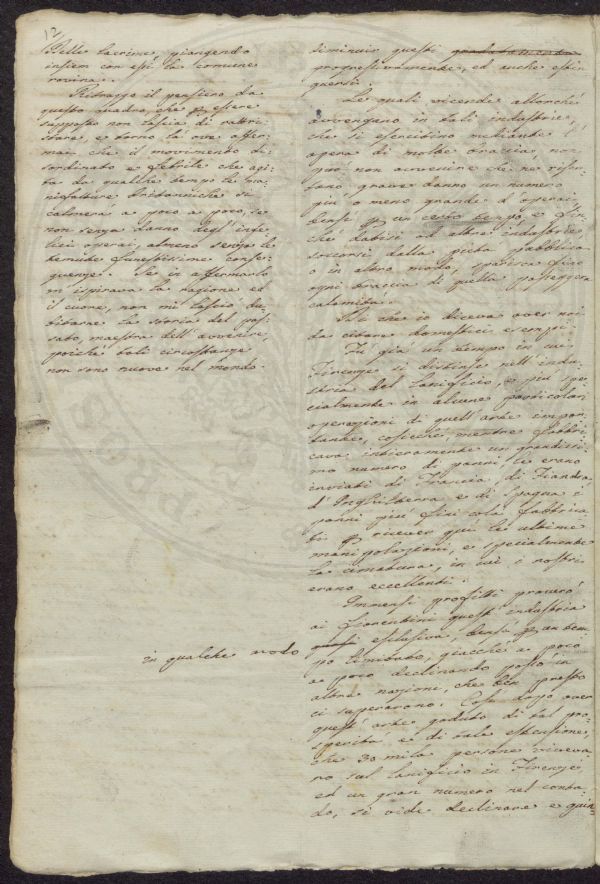 12
Delle lacrime, piangendo
insiem con essi la comune
rovina.
Ritraggo il pensiero da
questo quadro, che per essere
supposto non lascia di rattri-
stare, e torno là ove affer-
mai che il movimento di-
sordinato e febrile che agi-
ta da qualche tempo le ma-
nifatture britanniche si
calmerà a poco a poco, se
non senza danno degl'infe-
lici operai, almeno senza le
temute funestissime conse-
guenze. Se in affermarlo
m'ispirava la ragione ed
il cuore, non mi lasciò du-
bitare la storia del pas-
sato, maestra dell'avvenire,
poiché tali circostanze
non sono nuove nel mondo.
in qualche modo
diminuir questi gradatamente
progressivamente, ed anche estin-
guersi.
Le quali vicende allorché
avvengano in tali industrie,
che si esercitino mediante l'
opera di molte braccia, non
può non avvenire che ne risen-
tano grave danno un numero
più o meno grande d'operai,
bensì per un certo tempo, e fin-
ché datisi ad altre industrie,
soccorsi dalla pietà pubblica
o in altro modo, sparisca fino
ogni traccia di quella passeggera
calamità.
Di ciò che io diceva aver noi
da citare domestici esempi.
Fu già un tempo in cui
Firenze si distinse nell'indu-
stria del lanificio, e più spe-
cialmente in alcune particolari
operazioni di quell'arte impor-
tante, cosicché, mentre fabbri-
cava interamente un grandissi-
mo numero di panni, le erano
inviati di Francia, di Fiandra,
d'Inghilterra e di Spagna i
panni più fini colà fabbrica-
ti per ricever qui le ultime
manipolazioni, e specialmente
la cimatura, in cui i nostri
erano eccellenti.
Immensi profitti procurò
ai fiorentini quest'industria
quasi esclusiva, bensì per un tem-
po limitato, giacché a poco
a poco declinando passò in
altre nazioni, che ben presto
ci superarono. Così dopo aver
quest'arte goduto di tal pro-
sperità e di tale estensione,
che 30 mila persone viveva-
no sul lanificio in Firenze
ed un gran numero nel conta-
do, si vide declinare e quin-